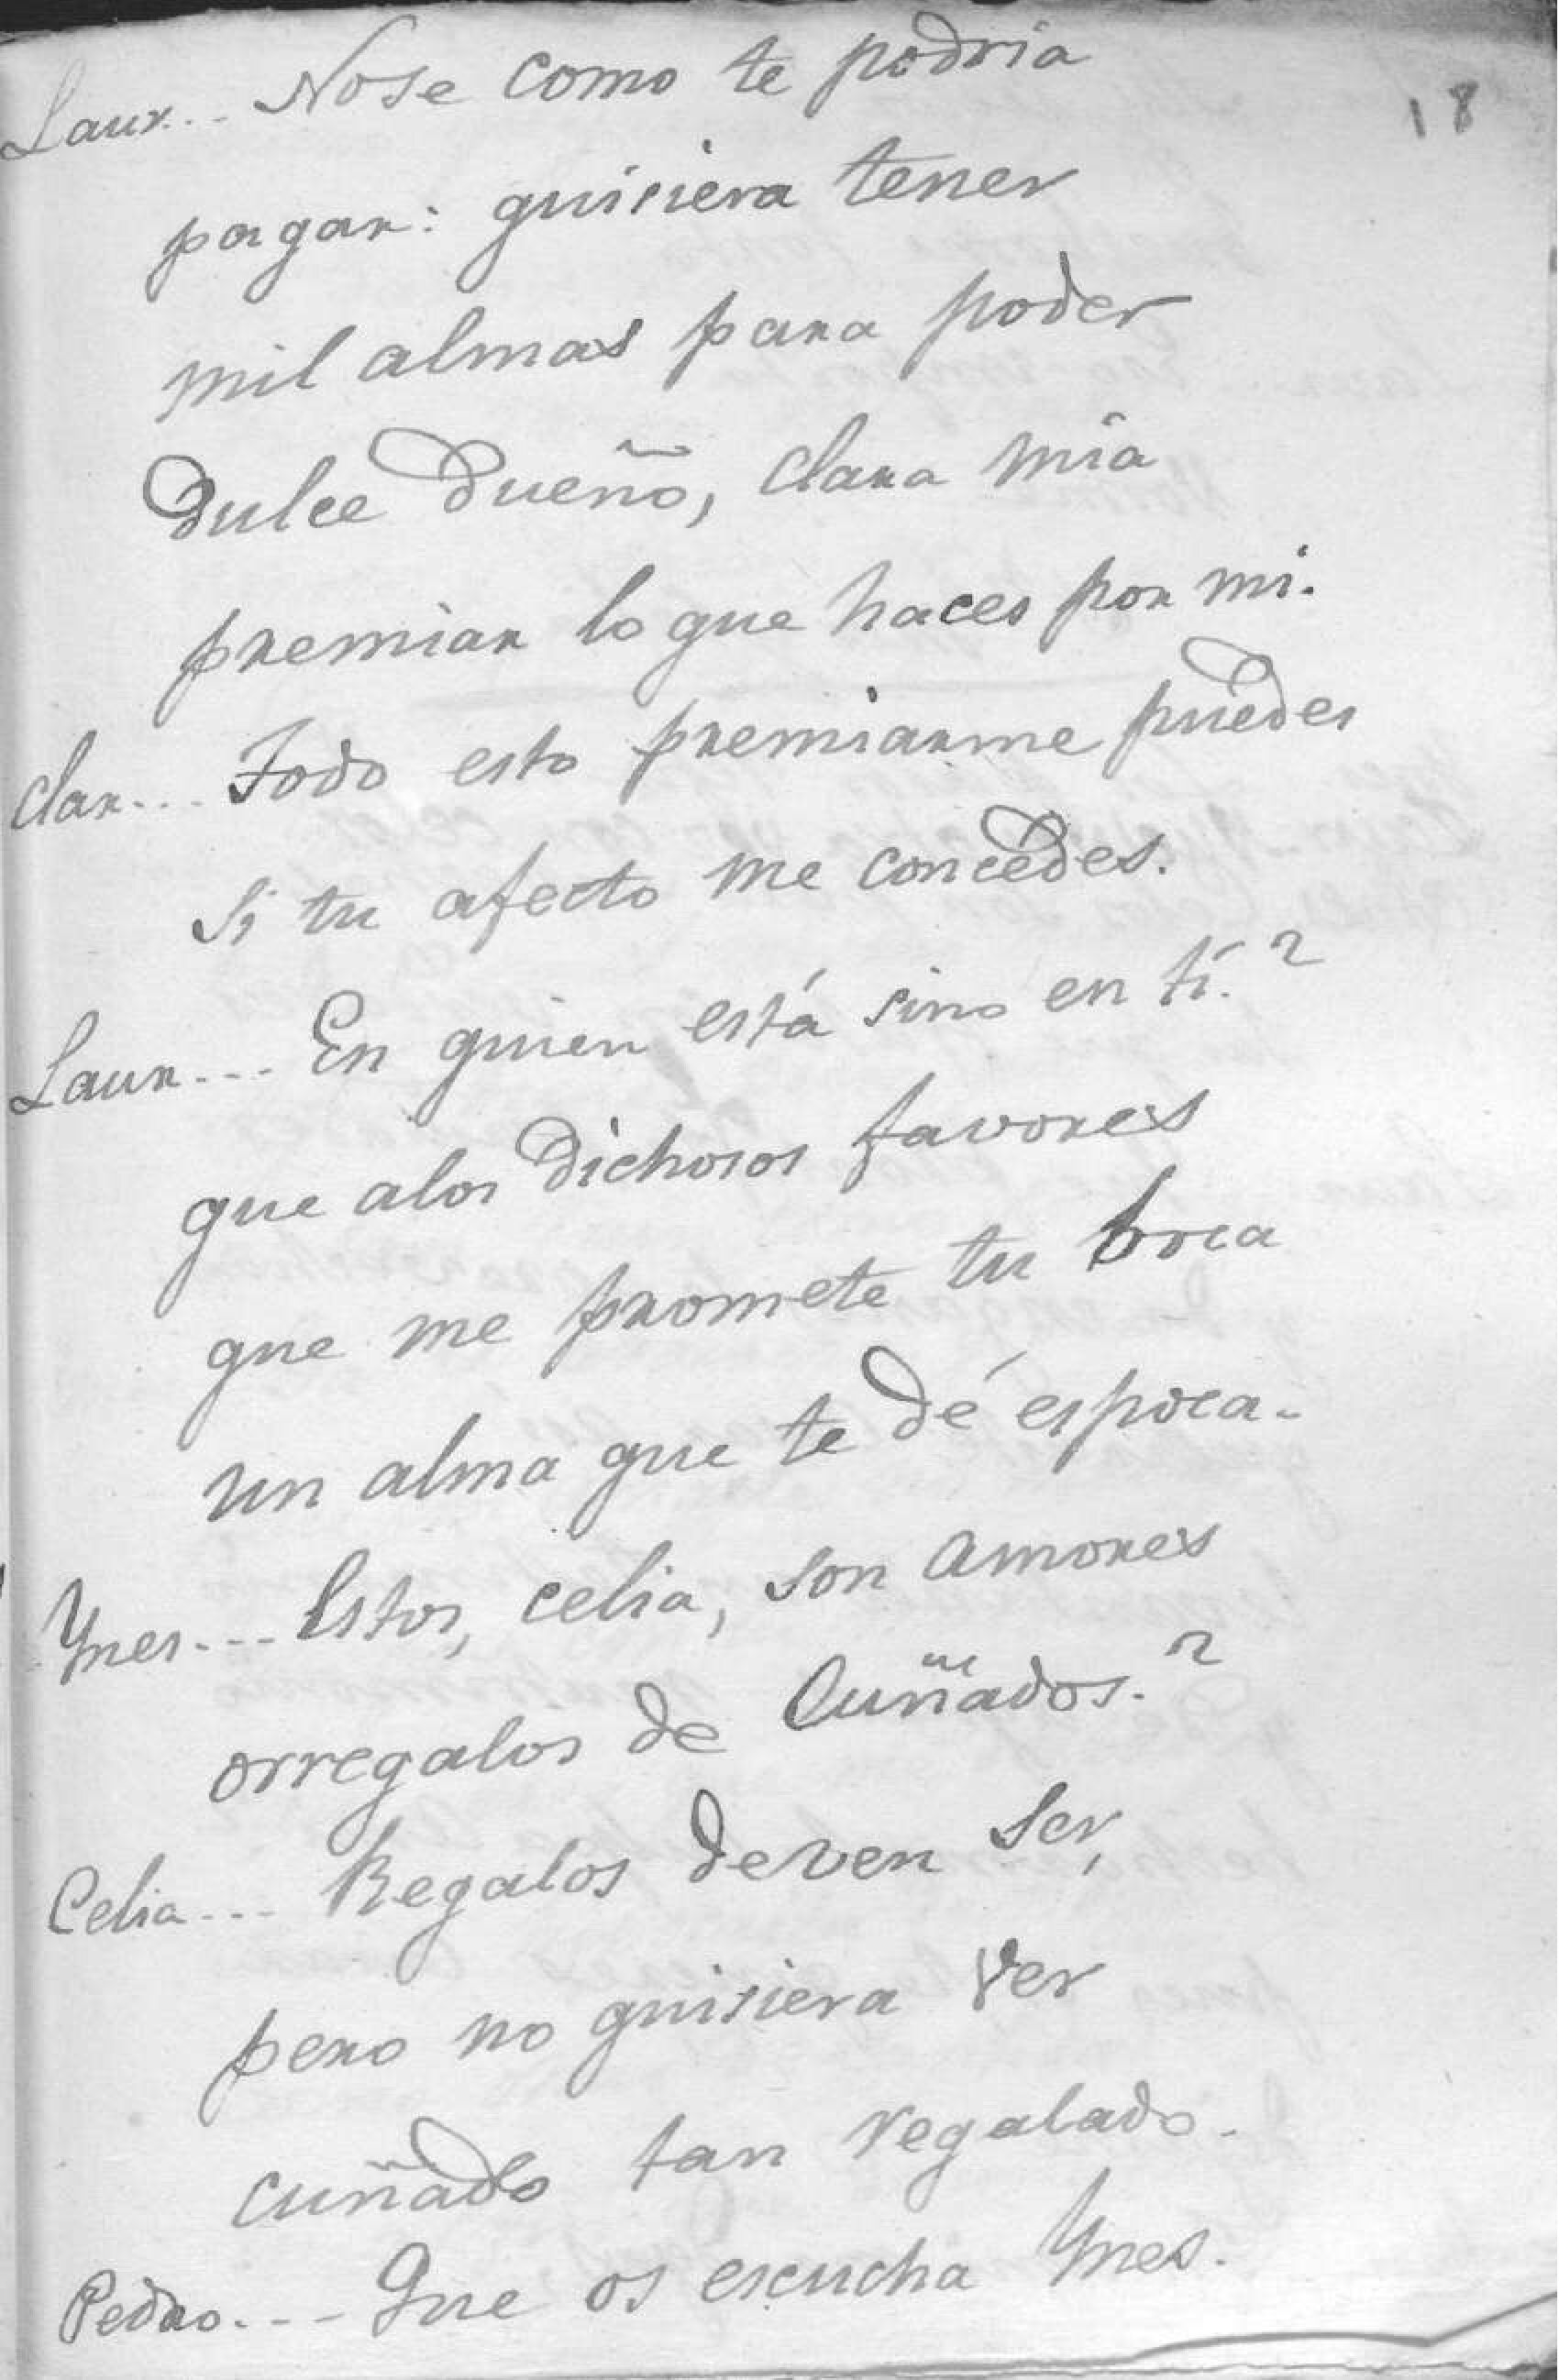 18
Laur... Nose como te podria
pagar: quisiera tener
mil almas para poder
dulce dueño, clara mia
premiar lo que haces por mi.
Clar... Todo esto premiarme puedes
si tu afecto me concedes.
Laur... En quien está sino en tí.?
que alos dichosos favores
que me promete tu boca
un alma que te dé es poca.
Ynes... Estos, celia, son amores
orregalos de Cuñados.?
Celia... Regalos deven ser,
pero no quisiera ver
cuñado tan regalado.
Pedro... Que os escucha Ynes.